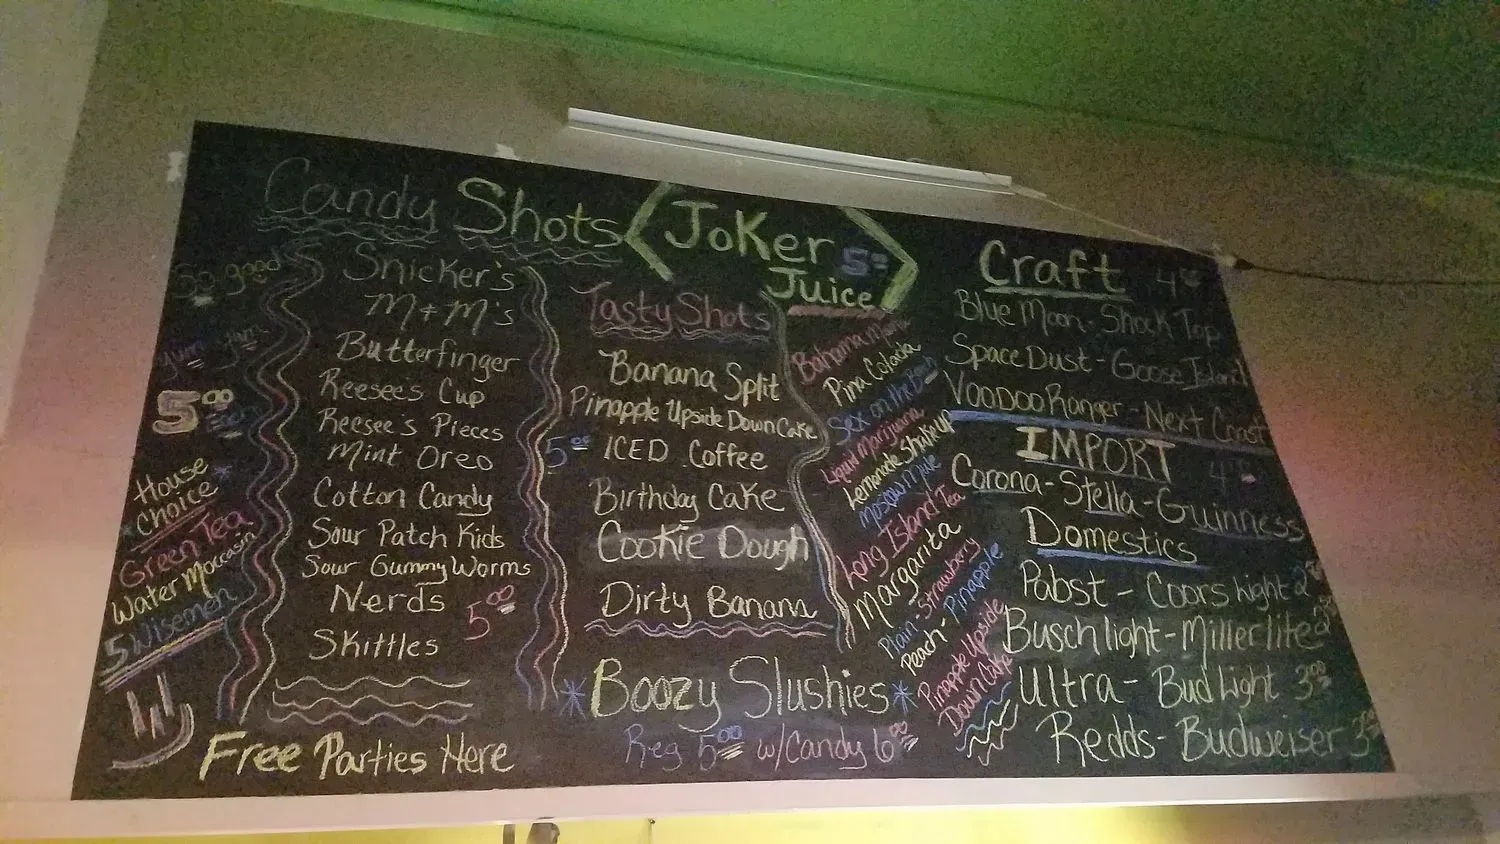 Candy Shots
Joker 5.00
Juice
So good
yum yum
5.00
House
Choice
Green Tea
Water Moccasin
5 Wisemen
Snicker's
M+M's
Butterfinger
Reesee's Cup
Reesee's Pieces
Mint Oreo
Cotton Candy
Sour Patch Kids
Sour Gummy Worms
Nerds 5.00
Skittles
Free Parties Here
Tasty Shots
Banana Split
Pinapple Upside Down Cake
5.00 ICED Coffee
Birthday Cake
Cookie Dough
Dirty Banana
*Boozy Slushies*
Reg 5.00 w/Candy 6.00
Bahama Mama
Pina Colada
Sex on the Beach
Liquid Marijuana
Lemonade Shakeup
Moscow Mule
Long Island Tea
Margarita
Plain - Strawberry
Peach - Pinapple
Pinapple Upside
Down Cake
Craft 4.00
Blue Moon - Shock Top
Space Dust - Goose Island
Voodoo Ranger - Next Coast
IMPORT 4
Corona - Stella - Guinness
Domestics
Pabst - Coors Light 2
Busch light - Miller lite 2
Ultra - Bud Light 3.00
Redds - Budweiser 3